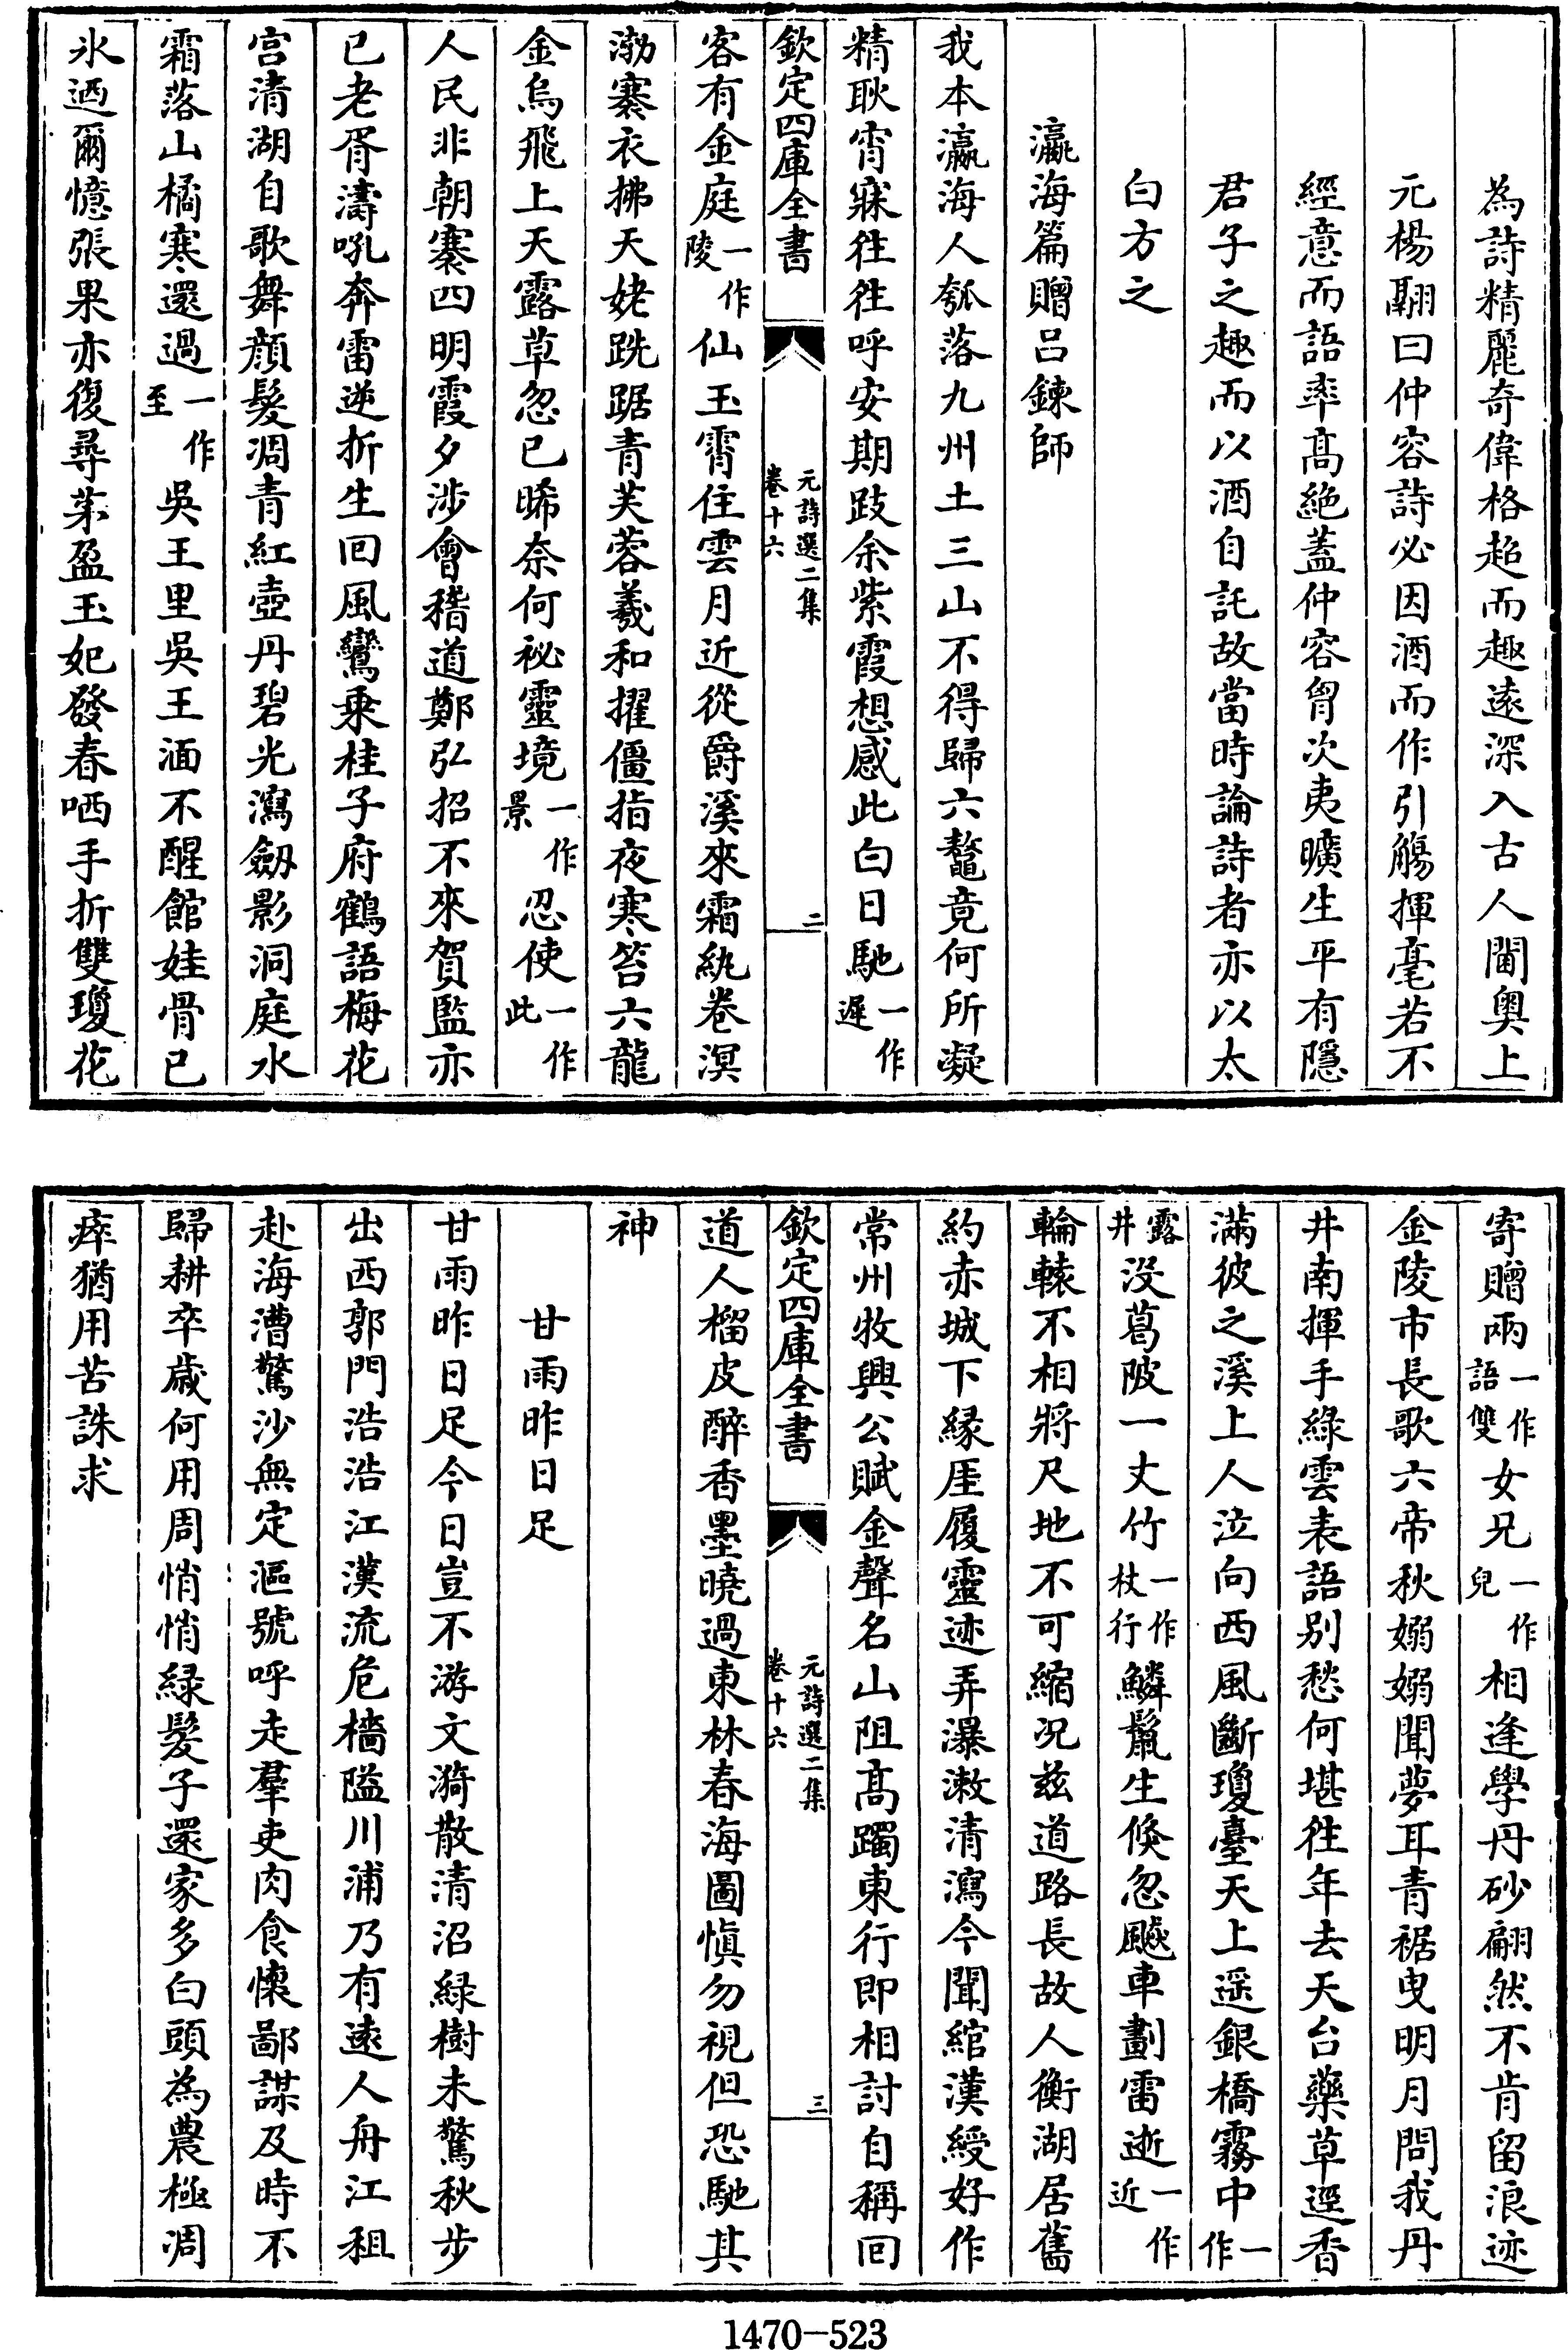 為詩精麗奇偉格超而趣遠深入古人閫奧上
元楊翮曰仲容詩必因酒而作引觴揮毫若不
經意而語率髙絶蓋仲容胷次夷曠生平有隱
君子之趣而以酒自託故當時論詩者亦以太
白方之
瀛海篇贈吕鍊師
我本瀛海人瓠落九州土三山不得歸六鼇竟何所凝
精耿宵寐徃徃呼安期跂余紫霞想感此白日馳一作遲
欽定四庫全書
元詩選二集
卷十六
二
客有金庭一作陵仙玉霄住雲月近從爵溪來霜紈卷溟
渤褰衣拂天姥跣踞青芙蓉羲和擢僵指夜寒笞六龍
金烏飛上天露草忽已晞奈何祕靈境一作景忍使一作此
人民非朝褰四明霞夕涉會稽道鄭弘招不來賀監亦
已老胥濤吼奔雷逆折生回風鸞乗桂子府鶴語梅花
宫清湖自歌舞顔髮凋青紅壺丹碧光瀉劔影洞庭水
霜落山橘寒還過一作至吳王里吳王湎不醒館娃骨已
氷迺爾憶張果亦復尋茅盈玉妃發春哂手折雙瓊花
寄贈兩一作語雙女兄一作兒相逢學丹砂翩然不肯留浪迹
金陵市長歌六帝秋嫋嫋聞夢耳青裾曳明月問我丹
井南揮手綠雲表語别愁何堪徃年去天台藥草逕香
滿彼之溪上人泣向西風斷瓊臺天上遥銀橋霧中一作
露井没葛陂一丈竹一作杖行鱗鬛生倐忽飈車劃雷逝一作近
輪轅不相將尺地不可縮况兹道路長故人衡湖居舊
約赤城下縁厓履靈迹弄瀑漱清瀉今聞綰漢綬好作
常州牧興公賦金聲名山阻髙躅東行即相討自稱回
欽定四庫全書
元詩選二集
卷十六
三
道人榴皮醉香墨曉過東林春海圖愼勿視但恐馳其
神
甘雨昨日足
甘雨昨日足今日豈不游文漪散清沼緑樹未驚秋步
出西郭門浩浩江漢流危檣隘川浦乃有逺人舟江租
赴海漕驚沙無定漚號呼走羣吏肉食懷鄙謀及時不
歸耕卒歳何用周悄悄緑髮子還家多白頭為農極凋
瘁猶用苦誅求
1470-523